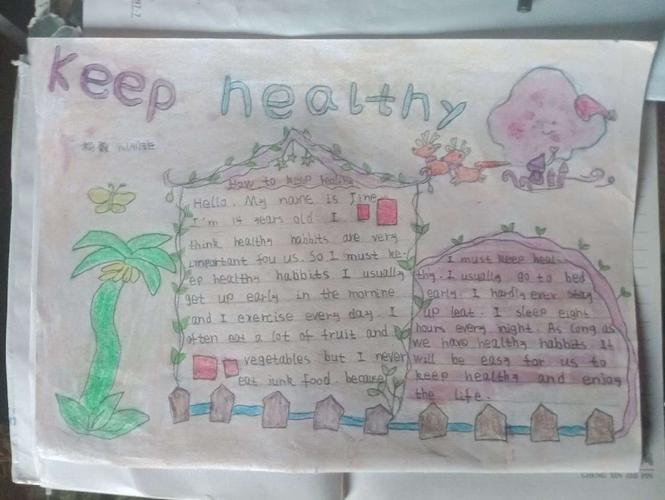 Keep healthy
How to keep healthy
Hello. My name is Jine
I'm 14 years old. I
think healthy habbits are very
important fou us. So I must ke-
ep healthy habbits I usually
get up early in the mornine
and I exercise every day. I
often eat a lot of fruit and
vegetables but I never
eat junk food because
I must keep heal-
thy. I usually go to bed
early. I hardly ever stay
up leat. I sleep eight
hours every night. As long as
we have healthy habbits It
will be easy for us to
keep healthy and enjoy
the life.